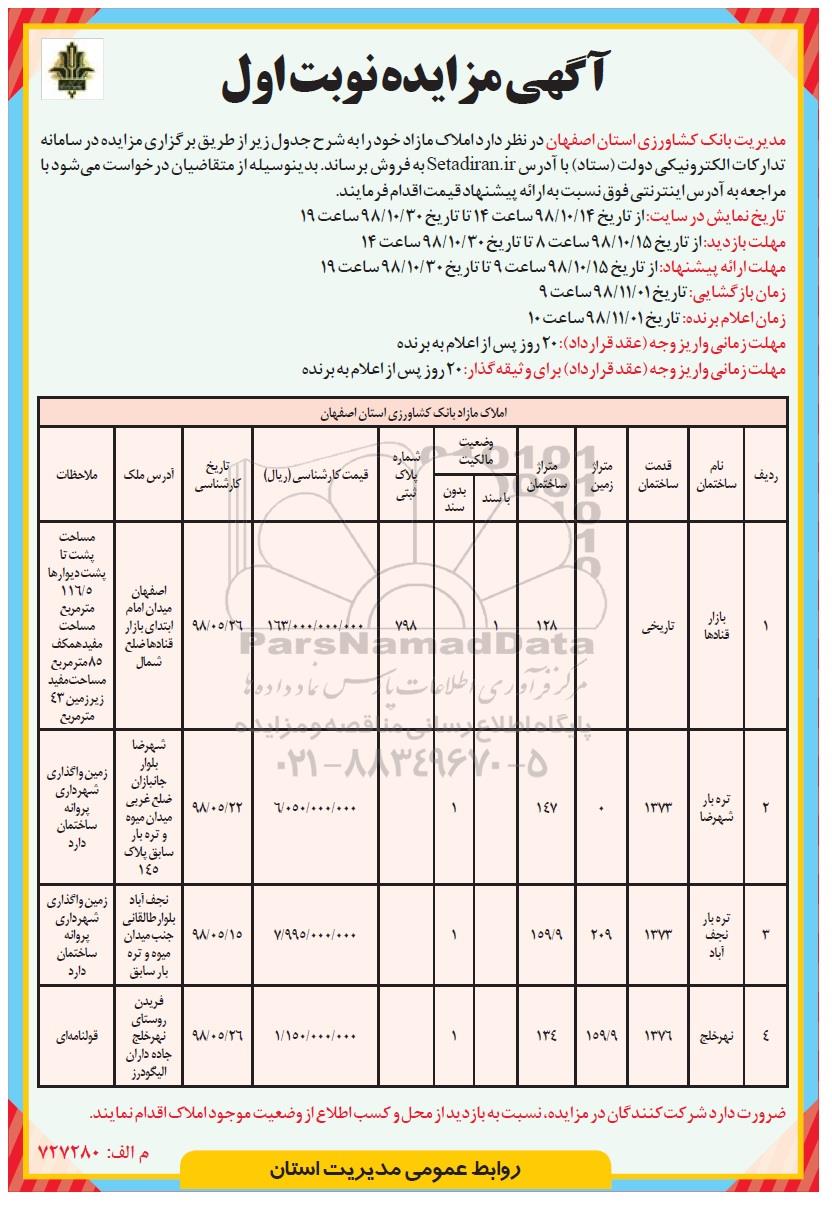 آگهی مزایده نوبت اول
مدیریت بانک کشاورزی استان اصفهان در نظر دارد املاک مازاد خود را به شرح جدول زیر از طریق برگزاری مزایده در سامانه
تدارکات الکترونیکی دولت (ستاد) با آدرس Setadiran.ir به فروش برساند. بدینوسیله از متقاضیان درخواست می‌شود با
مراجعه به آدرس اینترنتی فوق نسبت به ارائه پیشنهاد قیمت اقدام فرمایند.
تاریخ نمایش در سایت: از تاریخ ۹۸/۱۰/۱۴ ساعت ۱۴ تا تاریخ ۹۸/۱۰/۳۰ ساعت ۱۹
مهلت بازدید: از تاریخ ۹۸/۱۰/۱۵ ساعت ۸ تا تاریخ ۹۸/۱۰/۳۰ ساعت ۱۴
مهلت ارائه پیشنهاد: از تاریخ ۹۸/۱۰/۱۵ ساعت ۹ تا تاریخ ۹۸/۱۰/۳۰ ساعت ۱۹
زمان بازگشایی: تاریخ ۹۸/۱۱/۰۱ ساعت ۹
زمان اعلام برنده: تاریخ ۹۸/۱۱/۰۱ ساعت ۱۰
مهلت زمانی واریز وجه (عقد قرارداد): ۲۰ روز پس از اعلام به برنده
مهلت زمانی واریز وجه (عقد قرارداد) برای وثیقه گذار: ۲۰ روز پس از اعلام به برنده
املاک مازاد بانک کشاورزی استان اصفهان
ردیف
نام
ساختمان
قدمت
ساختمان
متراژ
زمین
متراژ
ساختمان
وضعیت
مالکیت
با سند
بدون
سند
شماره
پلاک
ثبتی
قیمت کارشناسی (ریال)
تاریخ
کارشناسی
آدرس ملک
ملاحظات
۱
بازار
قنادها
تاریخی
۱۲۸
۱
۷۹۸
۱۶۳/۰۰۰/۰۰۰/۰۰۰
۹۸/۰۵/۲۶
اصفهان
میدان امام
ابتدای بازار
قنادها ضلع
شمال
مساحت
پشت تا
پشت دیوارها
۱۱۶/۵
مترمربع
مساحت
مفید همکف
۸۵ مترمربع
مساحت مفید
زیرزمین ۴۳
مترمربع
۲
تره بار
شهرضا
۱۳۷۳
۰
۱۴۷
۱
۶/۰۵۰/۰۰۰/۰۰۰
۹۸/۰۵/۲۲
شهرضا
بلوار
جانبازان
ضلع غربی
میدان میوه
و تره بار
سابق پلاک
۱۴۵
زمین واگذاری
شهرداری
پروانه
ساختمان
دارد
۳
تره بار
نجف
آباد
۱۳۷۳
۲۰۹
۱۵۹/۹
۱
۷/۹۹۵/۰۰۰/۰۰۰
۹۸/۰۵/۱۵
نجف آباد
بلوار طالقانی
جنب میدان
میوه و تره
بار سابق
زمین واگذاری
شهرداری
پروانه
ساختمان
دارد
۴
نهرخلج
۱۳۷۶
۱۵۹/۹
۱۳۴
۱
۱/۱۵۰/۰۰۰/۰۰۰
۹۸/۰۵/۲۶
فریدن
روستای
نهرخلج
جاده داران
الیگودرز
قولنامه‌ای
ParsNamadData
مرکز فرآوری اطلاعات پارس نماد داده‌ها
پایگاه اطلاع رسانی مناقصه و مزایده
۰۲۱-۸۸۳۴۹۶۷۰-۵
ضرورت دارد شرکت کنندگان در مزایده، نسبت به بازدید از محل و کسب اطلاع از وضعیت موجود املاک اقدام نمایند.
م الف: ۷۲۷۲۸۰
روابط عمومی مدیریت استان